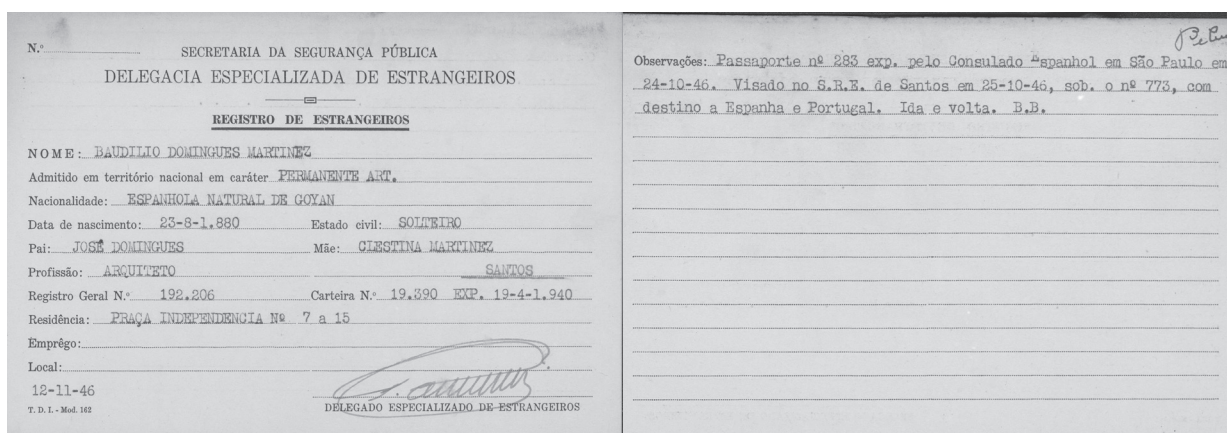 N.º
SECRETARIA DA SEGURANÇA PÚBLICA
DELEGACIA ESPECIALIZADA DE ESTRANGEIROS
REGISTRO DE ESTRANGEIROS
NOME: BAUDILIO DOMINGUES MARTINEZ
Admitido em território nacional em caráter PERMANENTE ART.
Nacionalidade: ESPANHOLA NATURAL DE GOYAN
Data de nascimento: 23-8-1.880 Estado civil: SOLTEIRO
Pai: JOSÉ DOMINGUES Mãe: CLESTINA MARTINEZ
Profissão: ARQUITETO SANTOS
Registro Geral N.º 192.206 Carteira N.º 19.390 EXP. 19-4-1.940
Residência: PRAÇA INDEPENDENCIA Nº 7 a 15
Emprêgo:
Local:
12-11-46
T. D. I. - Mod. 162
DELEGADO ESPECIALIZADO DE ESTRANGEIROS
Observações: Passaporte nº 283 exp. pelo Consulado Espanhol em São Paulo em
24-10-46. Visado no S.R.E. de Santos em 25-10-46, sob. o nº 773, com
destino a Espanha e Portugal. Ida e volta. B.B.